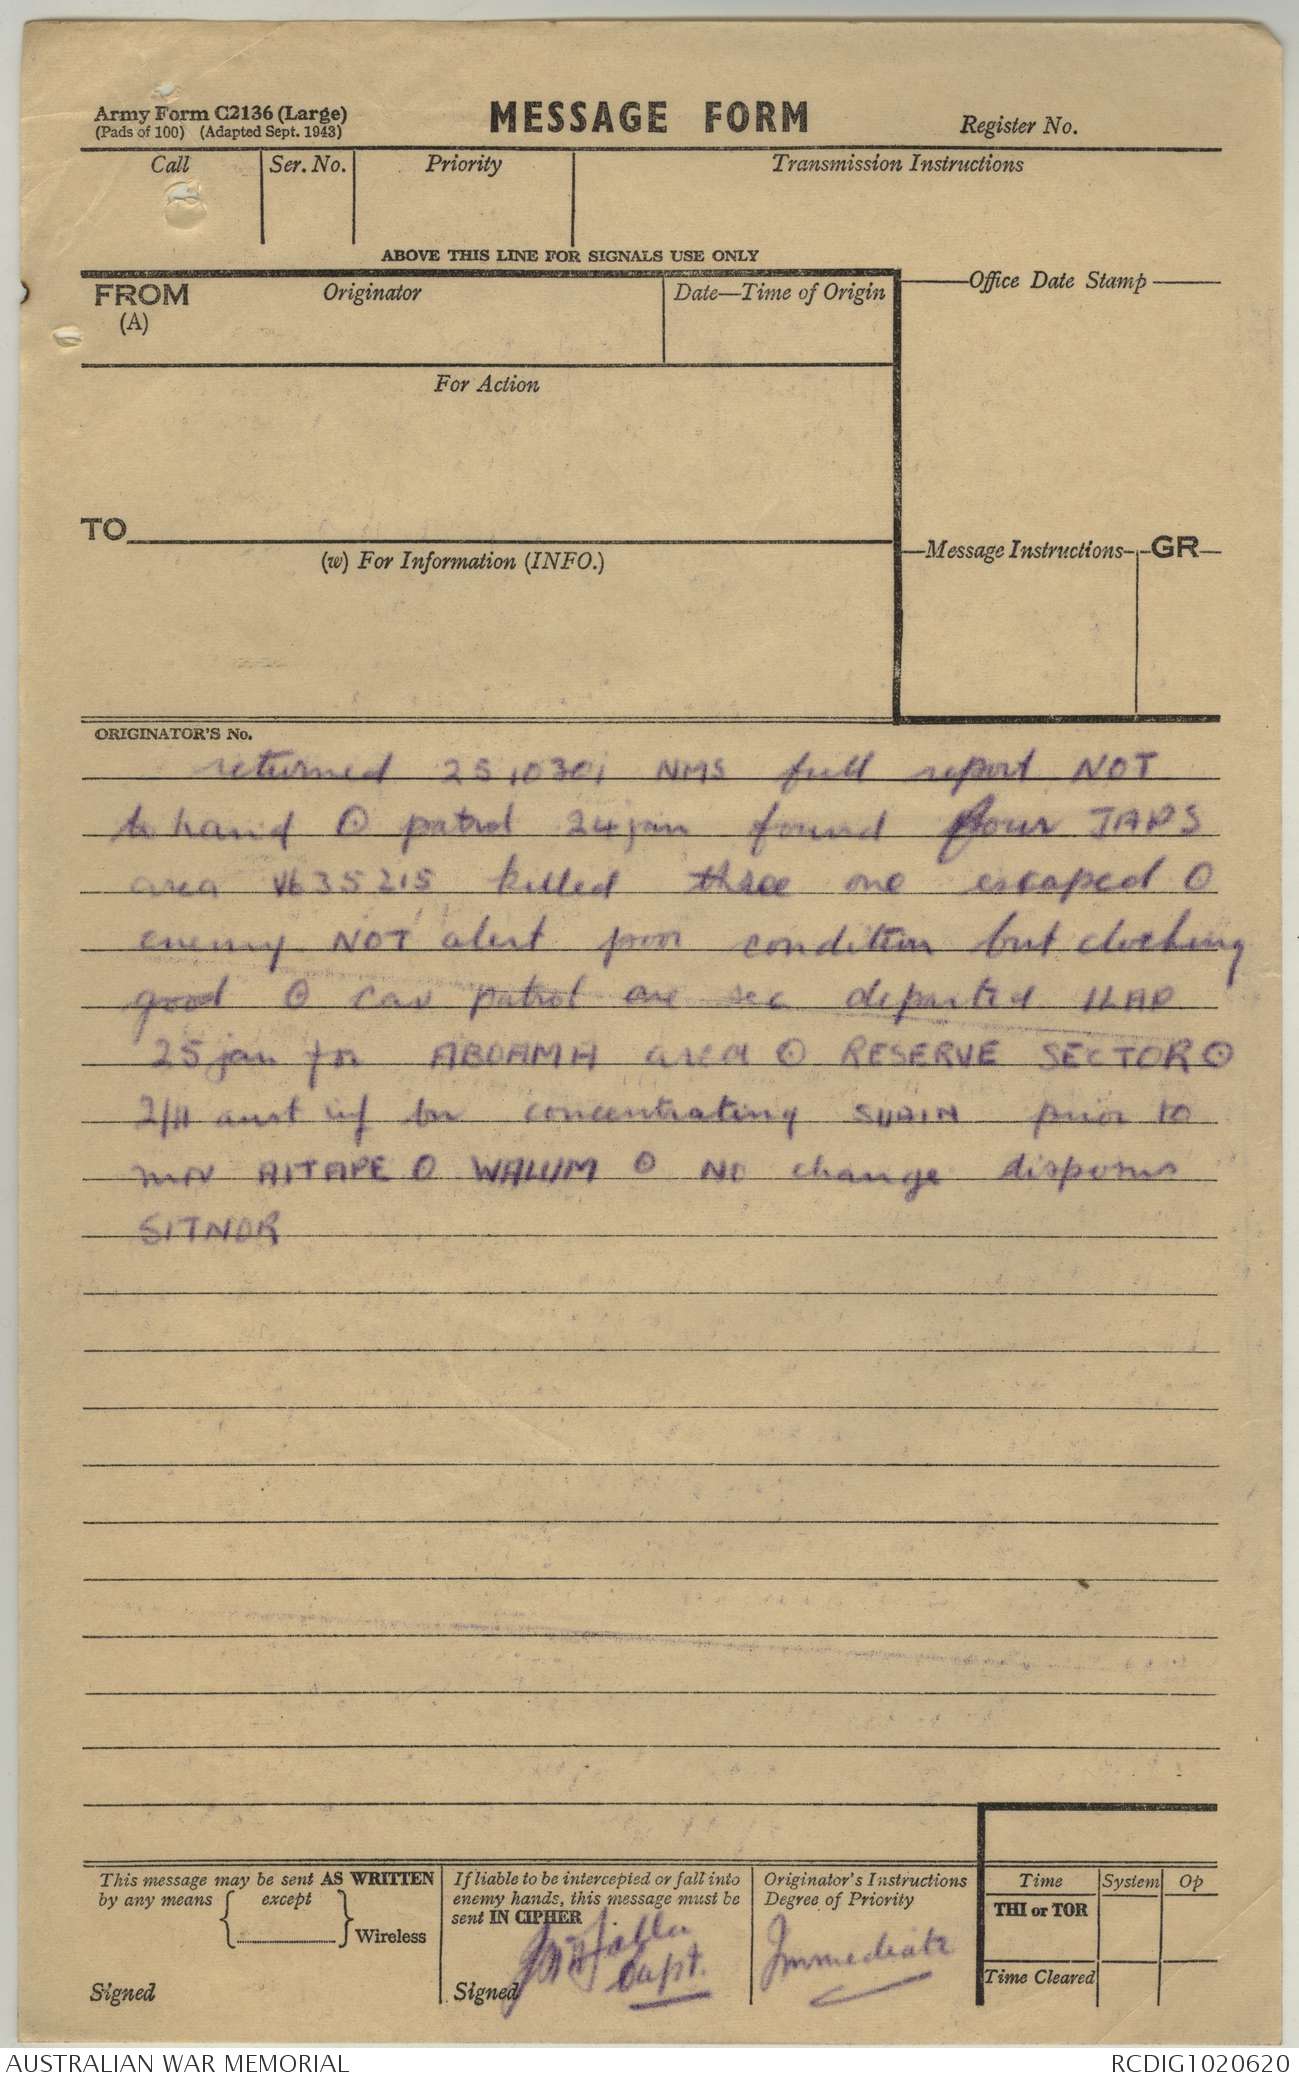 Army Form C2136 (Large)
(Pads of 100) (Adapted Sept. 1943)
MESSAGE FORM
Register No.
Call
Ser. No.
Priority
Transmission Instructions
ABOVE THIS LINE FOR SIGNALS USE ONLY
FROM
(A)
Originator
Date—Time of Origin
Office Date Stamp
For Action
TO
(w) For Information (INFO.)
Message Instructions
GR
ORIGINATOR'S No.
returned 251030I NMS full report NOT
to hand ⊙ patrol 24 jan found four JAPS
area V635215 killed three one escaped ⊙
enemy NOT alert poor condition but clothing
good ⊙ Cav patrol one sec departed ILAP
25 jan for ABOAMA area ⊙ RESERVE SECTOR ⊙
2/11 aust inf bn concentrating SUAIN prior to
mov AITAPE ⊙ WALUM ⊙ NO change disposns
SITNOR
This message may be sent AS WRITTEN
by any means { except } Wireless
Signed
If liable to be intercepted or fall into
enemy hands, this message must be
sent IN CIPHER
Signed
Capt.
Originator's Instructions
Degree of Priority
Immediate
Time
System
Op
THI or TOR
Time Cleared
AUSTRALIAN WAR MEMORIAL
RCDIG1020620